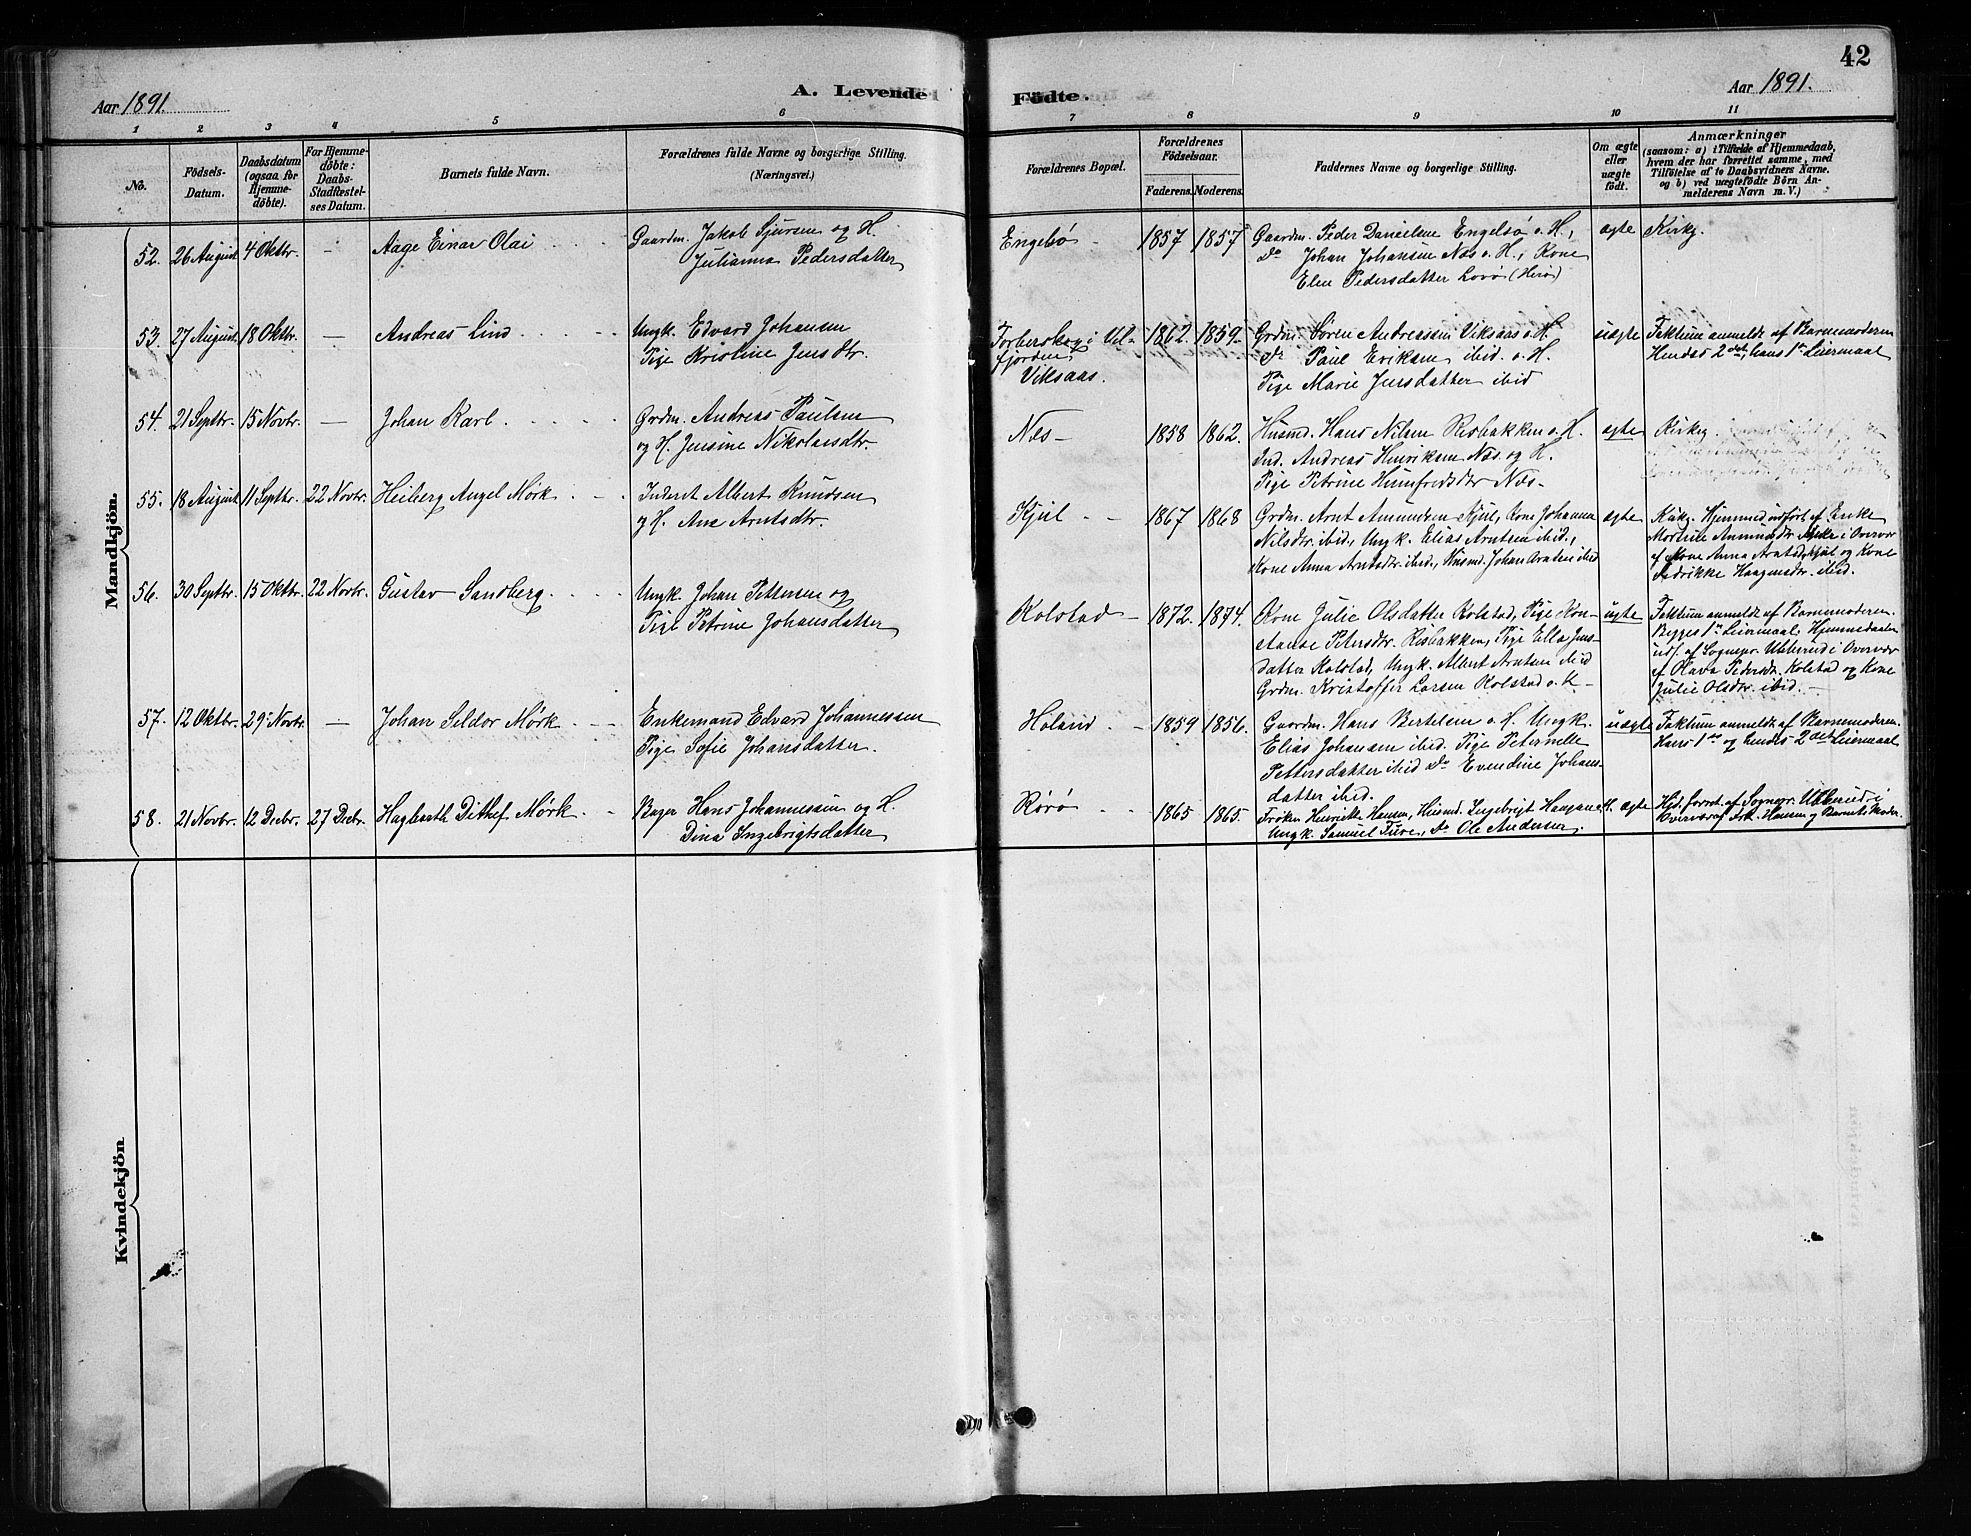 42
Aar 1891.
A. Levende Födte.
Aar 1891.
1 2 3 4 5 6 7 8 9 10 11
No.
Födsels-
Datum.
Daabsdatum
(ogsaa for
Hjemme-
döbte).
For Hjemme-
döbte:
Daabs-
Stadfæstel-
ses Datum.
Barnets fulde Navn.
Forældrenes fulde Navne og borgerlige Stilling.
(Næringsvei.)
Forældrenes Bopæl.
Forældrenes
Födselsaar.
Faderens. Moderens.
Faddernes Navne og borgerlige Stilling.
Om ægte
eller
uægte
födt.
Anmærkninger
(saasom: a) i Tilfælde af Hjemmedaab,
hvem der har forrettet samme, med
Tilföielse af to Daabsvidners Navne.
og b) ved uægtefödte Börn An-
melderens Navn m. V.)
Mandkjön.
52. 26 August 4 Oktbr. — Aage Einar Olai
Gaardm. Jakob Sjursen og H.
Julianna Pedersdatter
Engelsø 1857 1857
Gaardm. Peder Danielsen Engelsø o. H.,
Do Johan Johansen Næs o. H., Kone
Elen Pedersdatter Lovø (Herø)
ægte Kirkg.
53. 27 August 18 Oktbr. — Andreas Lind
Ungk. Edvard Johansen
Pige Kristine Jensdtr.
Torberskog i Vel-
fjorden,
Viksaas.
1862. 1859.
Grdm. Søren Andreassen Viksaas o. H.
Do Paul Eriksen ibid. o. H.
Pige Marie Jensdatter ibid
uægte Faktum anmeldt af Barnemoderen
Hendes 2det, hans 1ste Leiermaal
54. 21 Septbr. 15 Novbr. — Johan Karl
Grdm. Andreas Paulsen
og H. Jensine Nikolaisdtr.
Næs 1858 1862.
Husmd. Hans Nilsen Risbakken o. H.
Ind. Andreas Henriksen Næs og H.
Pige Petrine Humfredsdr Næs
ægte Kirkeg.
55. 18 August 11 Septbr. 22 Novbr. Heiberg Angel Mörk
Inderst Albert Knudsen
og H. Ane Arntsdtr.
Kjul 1867 1868
Grdm. Arnt Amundsen Kjul, Kone Johanna
Nilsdtr. ibid., Ungk. Elias Arntsen ibid.,
Kone Anna Arntsdtr. ibid., Husmd. Johan Arntsen ibid
ægte Kirkg. Hjemmed. udført af Enke
i Overvær
af Kone Anna Arntsdtr Kjul og Kone
Fredrikke Haagensdr. ibid.
56. 30 Septbr. 15 Oktbr. 22 Novbr. Gustav Sandberg
Ungk. Johan Pettersen og
Pige Petrine Johansdatter
Kolstad 1872. 1874.
Kone Julie Olsdatter Kolstad, Pige Kon-
stanse Petersdtr. Risbakken, Pige Ella Jens-
datter Kolstad, Ungk. Albert Arntsen ibid
Grdm. Kristoffer Larsen Kolstad o. H
uægte Faktum anmeldt af Barnemoderen.
Begges 1ste Leiermaal. Hjemmedaaben
udf. af Sognepr. i Overvær
af Olava Pedersdtr. Kolstad og Kone
Julie Olsdtr. ibid.
57. 12 Oktbr. 29 Novbr. — Johan Seldor Mörk
Enkemand Edvard Johannessen
Pige Sofie Johansdatter.
Høland 1859 1856.
Gaardm. Hans Bertelsen o. H. Ungk.
Elias Johansen ibid. Pige Peternelle
Pettersdatter ibid Do Evendine Johans-
datter ibid.
uægte Faktum anmeldt af Barnemoderen.
Hans 1ste og hendes 2det Leiermaal
58. 21 Novbr. 12 Decbr. 27 Decbr. Hagbarth Ditlef Mörk
Bager Hans Johannessen og H.
Dina Ingebrigtsdatter
Rörø 1865 1865
Frøken Henriette Hansen, Husmd. Ingebrigt
Ungk. Samuel Ture, Do Ole Andersen.
ægte Hjd. forret. af Sognepr. i
Overvær af Frk. Hansen og Barnets Moder.
Kvindekjön.